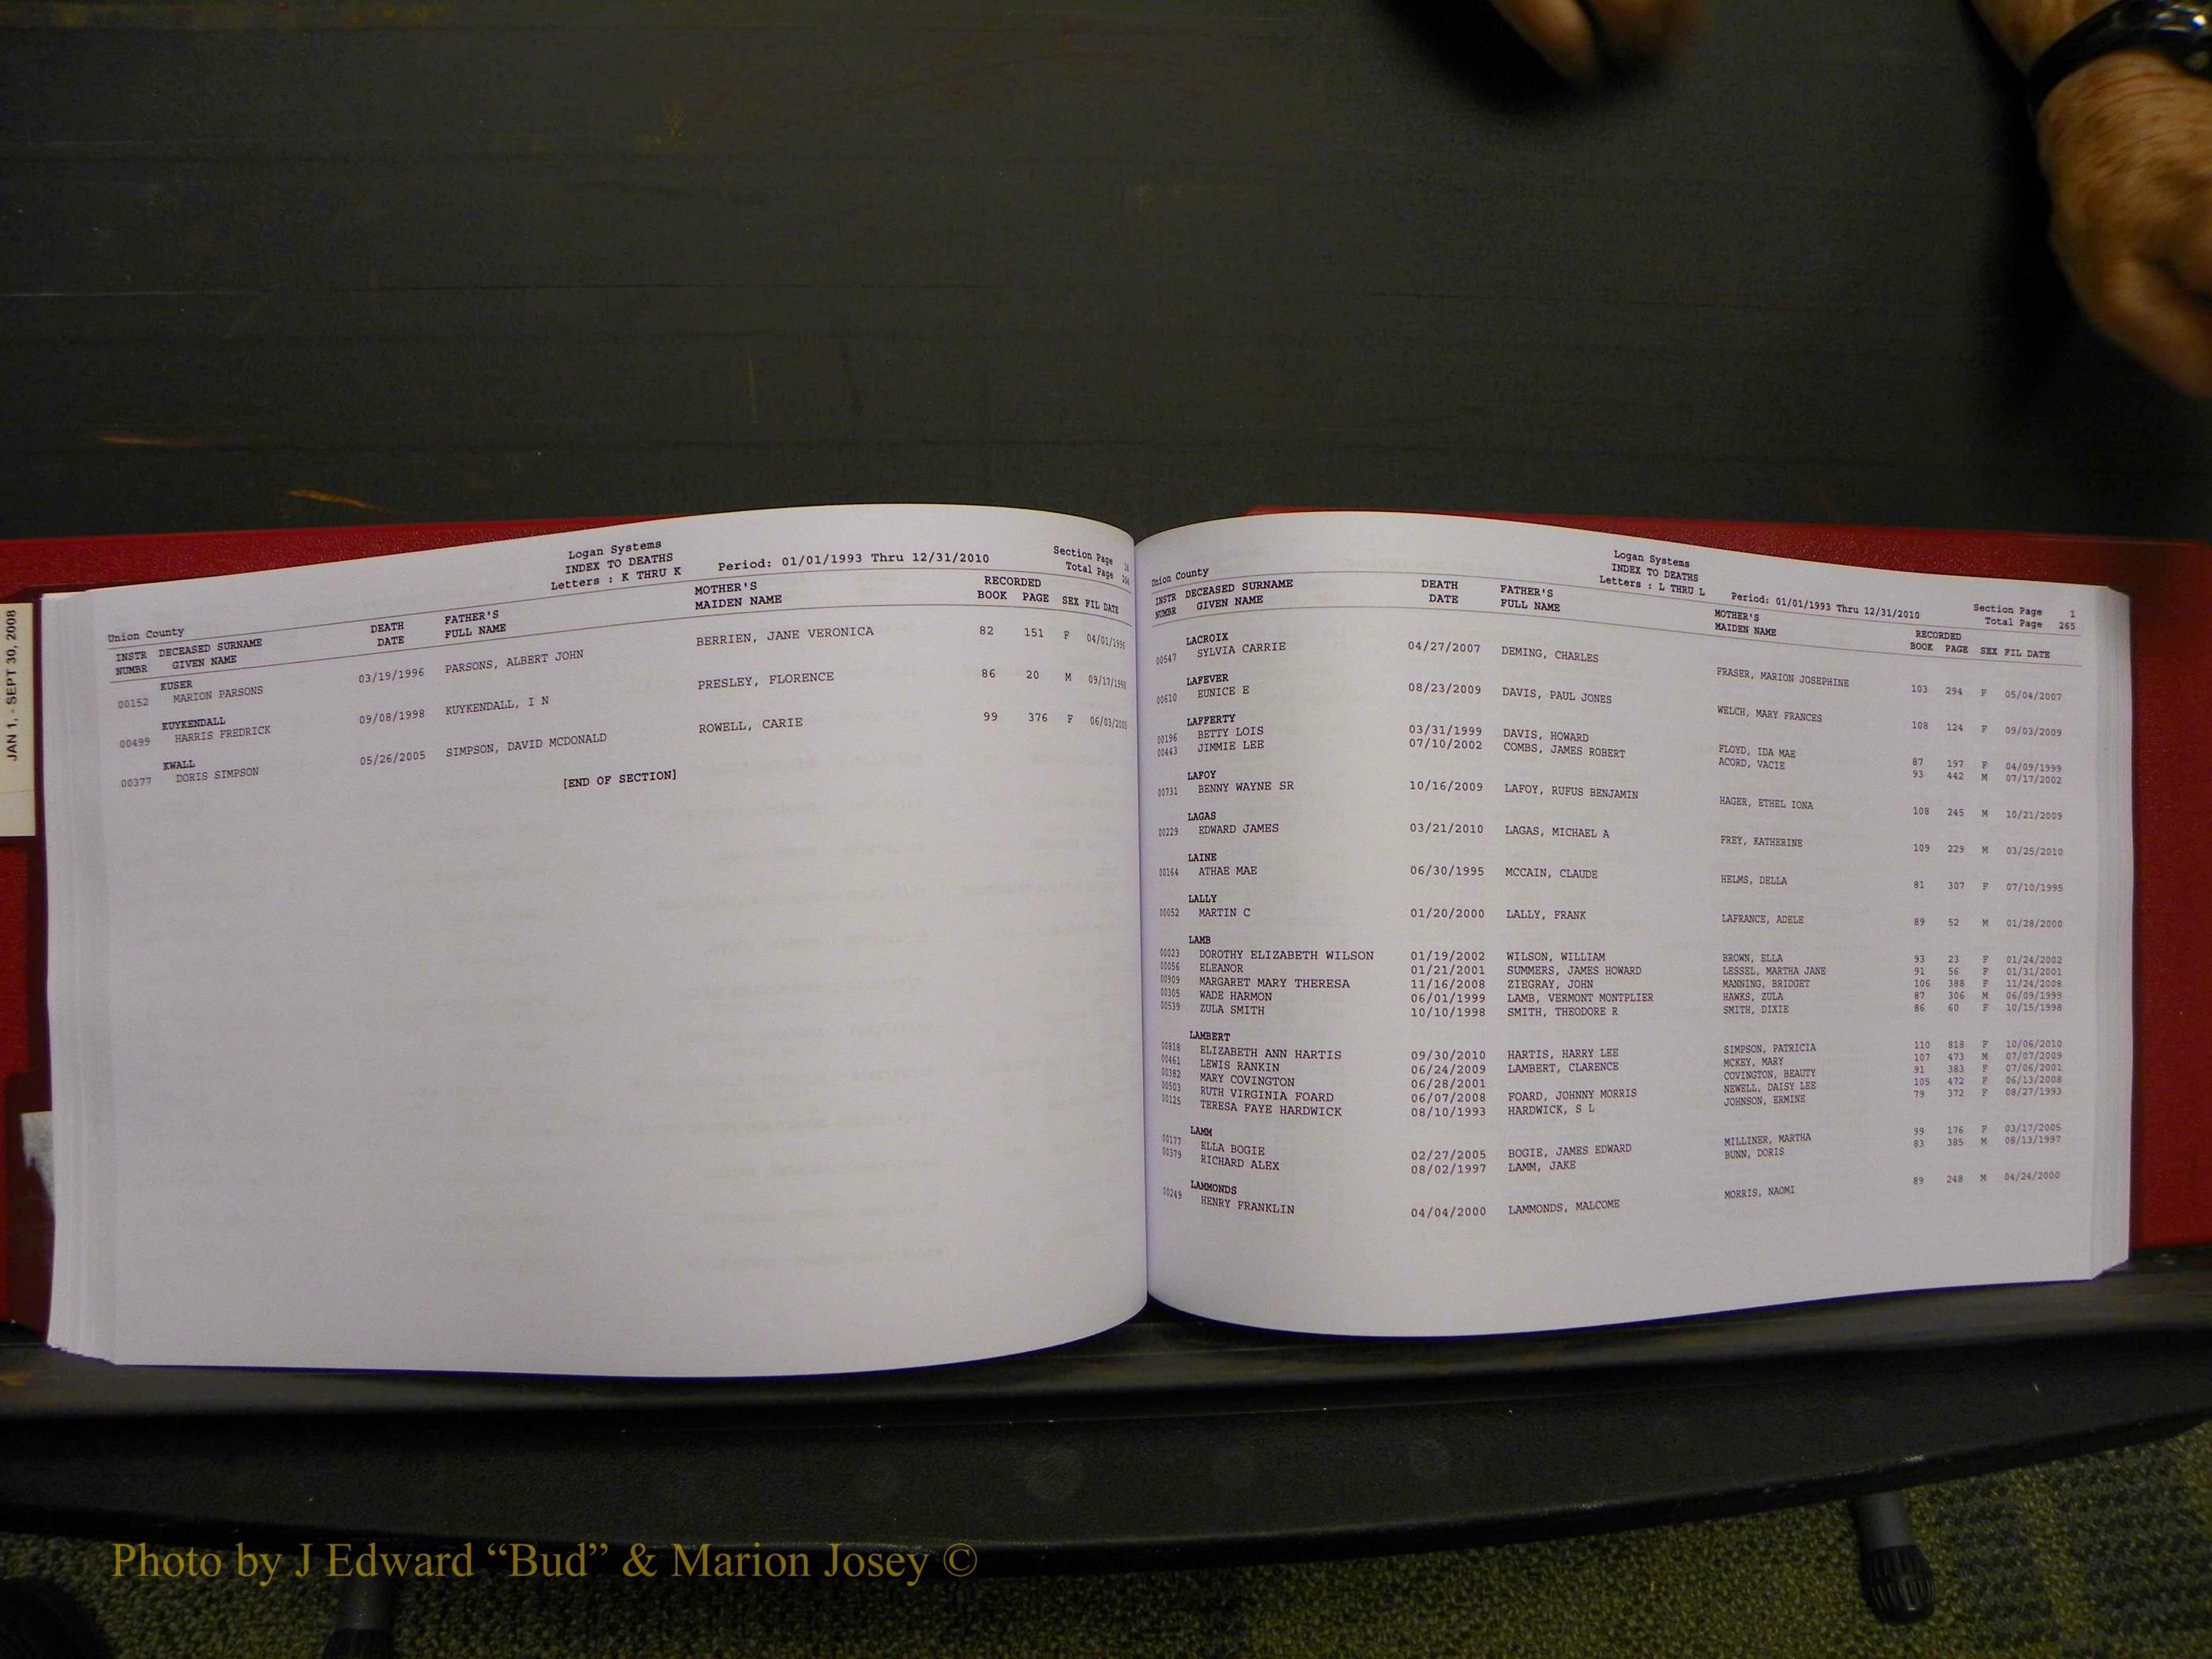 JAN 1, - SEPT 30, 2008
Logan Systems
INDEX TO DEATHS
Letters : K THRU K Period: 01/01/1993 Thru 12/31/2010
Section Page
Total Page
Union County
INSTR DECEASED SURNAME DEATH FATHER'S MOTHER'S RECORDED
NUMBR GIVEN NAME DATE FULL NAME MAIDEN NAME BOOK PAGE SEX FIL DATE
KUSER
00152 MARION PARSONS 03/19/1996 PARSONS, ALBERT JOHN BERRIEN, JANE VERONICA 82 151 F 04/01/1996
KUYKENDALL
00499 HARRIS FREDRICK 09/08/1998 KUYKENDALL, I N PRESLEY, FLORENCE 86 20 M 09/17/1998
KWALL
00377 DORIS SIMPSON 05/26/2005 SIMPSON, DAVID MCDONALD ROWELL, CARIE 99 376 F 06/03/2005
[END OF SECTION]
Logan Systems
INDEX TO DEATHS
Letters : L THRU L Period: 01/01/1993 Thru 12/31/2010
Section Page 1
Total Page 265
Union County
INSTR DECEASED SURNAME DEATH FATHER'S MOTHER'S RECORDED
NUMBR GIVEN NAME DATE FULL NAME MAIDEN NAME BOOK PAGE SEX FIL DATE
LACROIX
00547 SYLVIA CARRIE 04/27/2007 DEMING, CHARLES FRASER, MARION JOSEPHINE 103 294 F 05/04/2007
LAFEVER
00610 EUNICE E 08/23/2009 DAVIS, PAUL JONES WELCH, MARY FRANCES 108 124 F 09/03/2009
LAFFERTY
00196 BETTY LOIS 03/31/1999 DAVIS, HOWARD FLOYD, IDA MAE 87 197 F 04/09/1999
00443 JIMMIE LEE 07/10/2002 COMBS, JAMES ROBERT ACORD, VACIE 93 442 M 07/17/2002
LAFOY
00731 BENNY WAYNE SR 10/16/2009 LAFOY, RUFUS BENJAMIN HAGER, ETHEL IONA 108 245 M 10/21/2009
LAGAS
00229 EDWARD JAMES 03/21/2010 LAGAS, MICHAEL A FREY, KATHERINE 109 229 M 03/25/2010
LAINE
00164 ATHAE MAE 06/30/1995 MCCAIN, CLAUDE HELMS, DELLA 81 307 F 07/10/1995
LALLY
00052 MARTIN C 01/20/2000 LALLY, FRANK LAFRANCE, ADELE 89 52 M 01/28/2000
LAMB
00023 DOROTHY ELIZABETH WILSON 01/19/2002 WILSON, WILLIAM BROWN, ELLA 93 23 F 01/24/2002
00056 ELEANOR 01/21/2001 SUMMERS, JAMES HOWARD LESSEL, MARTHA JANE 91 56 F 01/31/2001
00909 MARGARET MARY THERESA 11/16/2008 ZIEGRAY, JOHN MANNING, BRIDGET 106 388 F 11/24/2008
00305 WADE HARMON 06/01/1999 LAMB, VERMONT MONTPLIER HAWKS, ZULA 87 306 M 06/09/1999
00539 ZULA SMITH 10/10/1998 SMITH, THEODORE R SMITH, DIXIE 86 60 F 10/15/1998
LAMBERT
00818 ELIZABETH ANN HARTIS 09/30/2010 HARTIS, HARRY LEE SIMPSON, PATRICIA 110 818 F 10/06/2010
00461 LEWIS RANKIN 06/24/2009 LAMBERT, CLARENCE MCKEY, MARY 107 473 M 07/07/2009
00382 MARY COVINGTON 06/28/2001 COVINGTON, BEAUTY 91 383 F 07/06/2001
00503 RUTH VIRGINIA FOARD 06/07/2008 FOARD, JOHNNY MORRIS NEWELL, DAISY LEE 105 472 F 06/13/2008
00125 TERESA FAYE HARDWICK 08/10/1993 HARDWICK, S L JOHNSON, ERMINE 79 372 F 08/27/1993
LAMM
00177 ELLA BOGIE 02/27/2005 BOGIE, JAMES EDWARD MILLINER, MARTHA 99 176 F 03/17/2005
00379 RICHARD ALEX 08/02/1997 LAMM, JAKE BUNN, DORIS 83 385 M 08/13/1997
LAMMONDS
00249 HENRY FRANKLIN 04/04/2000 LAMMONDS, MALCOME MORRIS, NAOMI 89 248 M 04/24/2000
Photo by J Edward “Bud” & Marion Josey ©